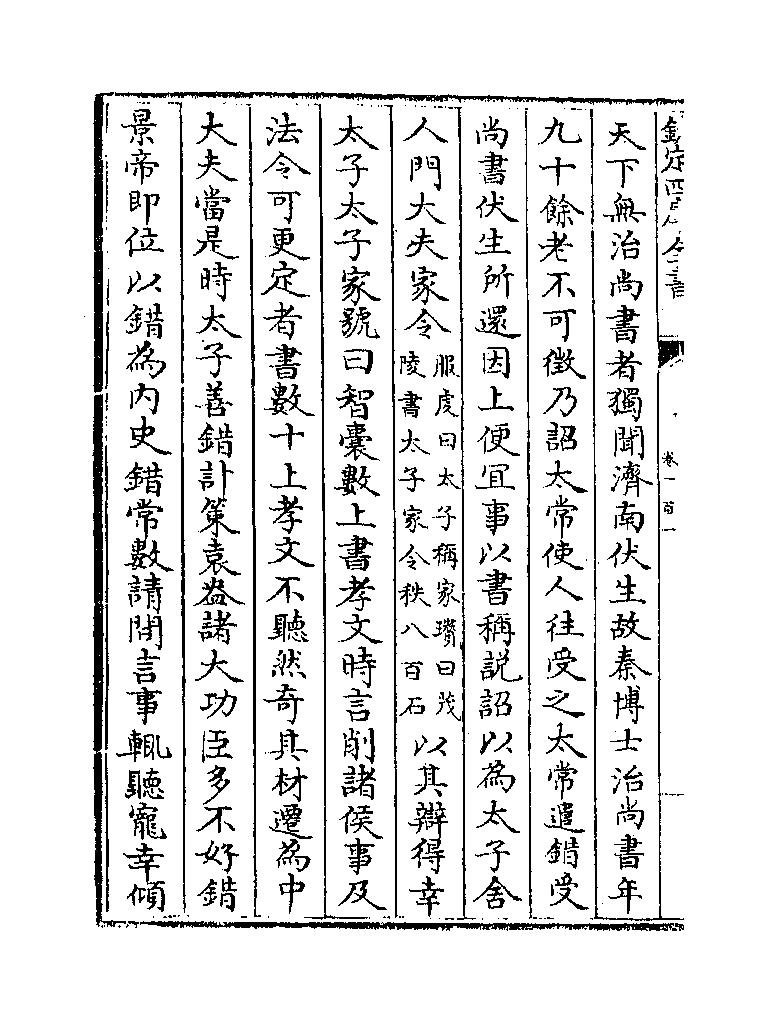 欽定四庫全書
卷一百一
天下無治尚書者獨聞濟南伏生故秦博士治尚書年
九十餘老不可徵乃詔太常使人往受之太常遣錯受
尚書伏生所還因上便宜事以書稱説詔以為太子舍
人門大夫家令服虔曰太子稱家瓚曰茂陵書太子家令秩八百石以其辯得幸
太子太子家號曰智囊數上書孝文時言削諸侯事及
法令可更定者書數十上孝文不聽然奇其材遷為中
大夫當是時太子善錯計策袁盎諸大功臣多不好錯
景帝即位以錯為內史錯常數請間言事輒聽寵幸傾